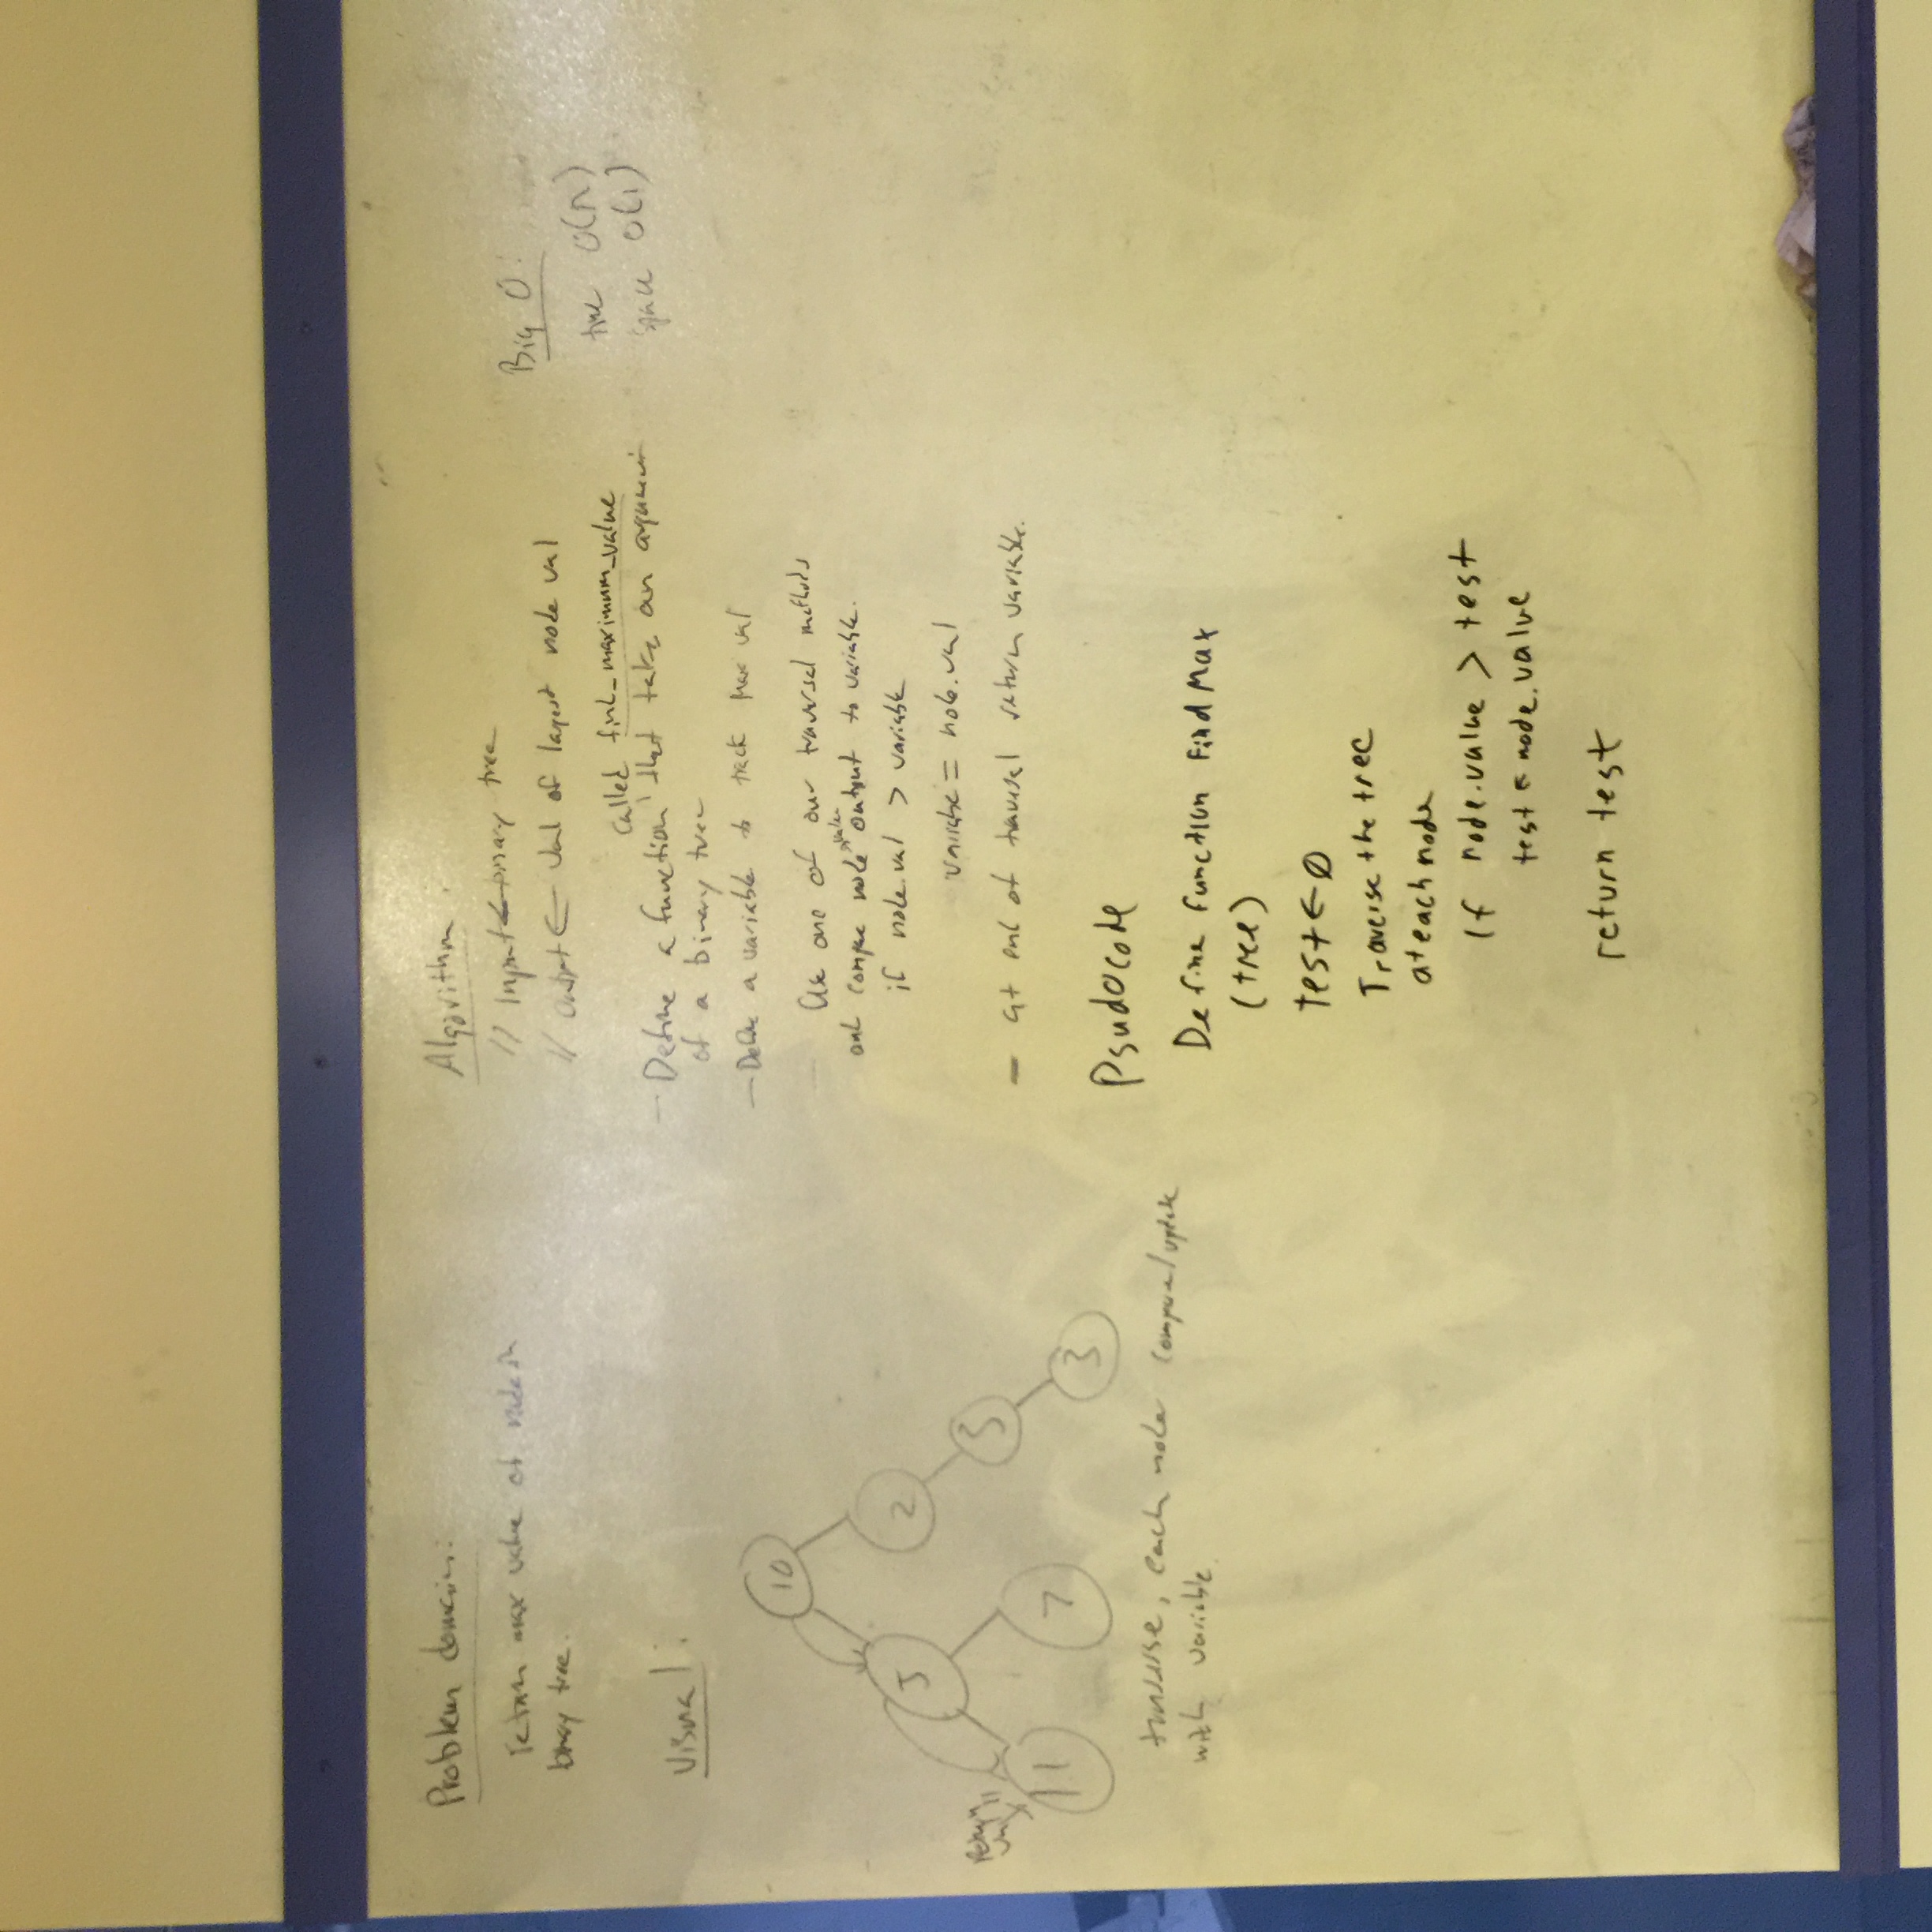 Problem domain:
return max value of node in
binary tree.
Visual:
10
5
2
5
return
11
7
3
traverse, each node compare/update
with variable.
Algorithm:
// Input ← binary tree
// Output ← Val of largest node val
called find_maximum_value
- Define a function that take an argument
of a binary tree
- Define a variable to track Max val
- Use one of our traversal methods
value
and compare node output to variable.
if node.val > variable
variable = node.val
- at end of traversal return variable.
Psudocode
Define function Find Max
(tree)
test ← 0
Traverse the tree
at each node
If node.value > test
test ← node.value
return test
Big O:
time O(n)
space O(1)